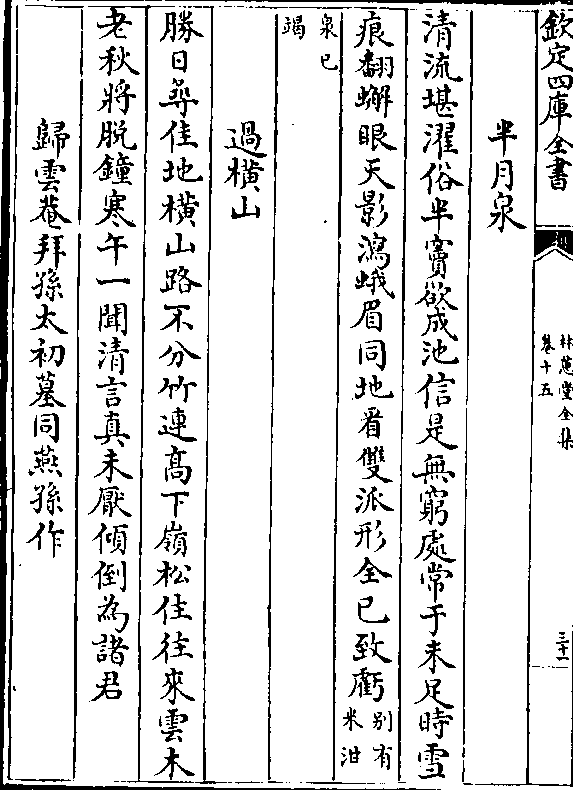 欽定四庫全書
林蕙堂全集
卷十五
三十一
半月泉
清流堪濯俗半竇欲成池信是無窮處常于未足時雪
痕翻蠏眼天影瀉蛾眉同地看雙派形全已致虧
別有
米泔
泉已
竭
過橫山
勝日尋佳地橫山路不分竹連高下嶺松住往來雲木
老秋將脫鐘寒午一聞清言真未厭傾倒為諸君
歸雲菴拜孫太初墓同燕孫作